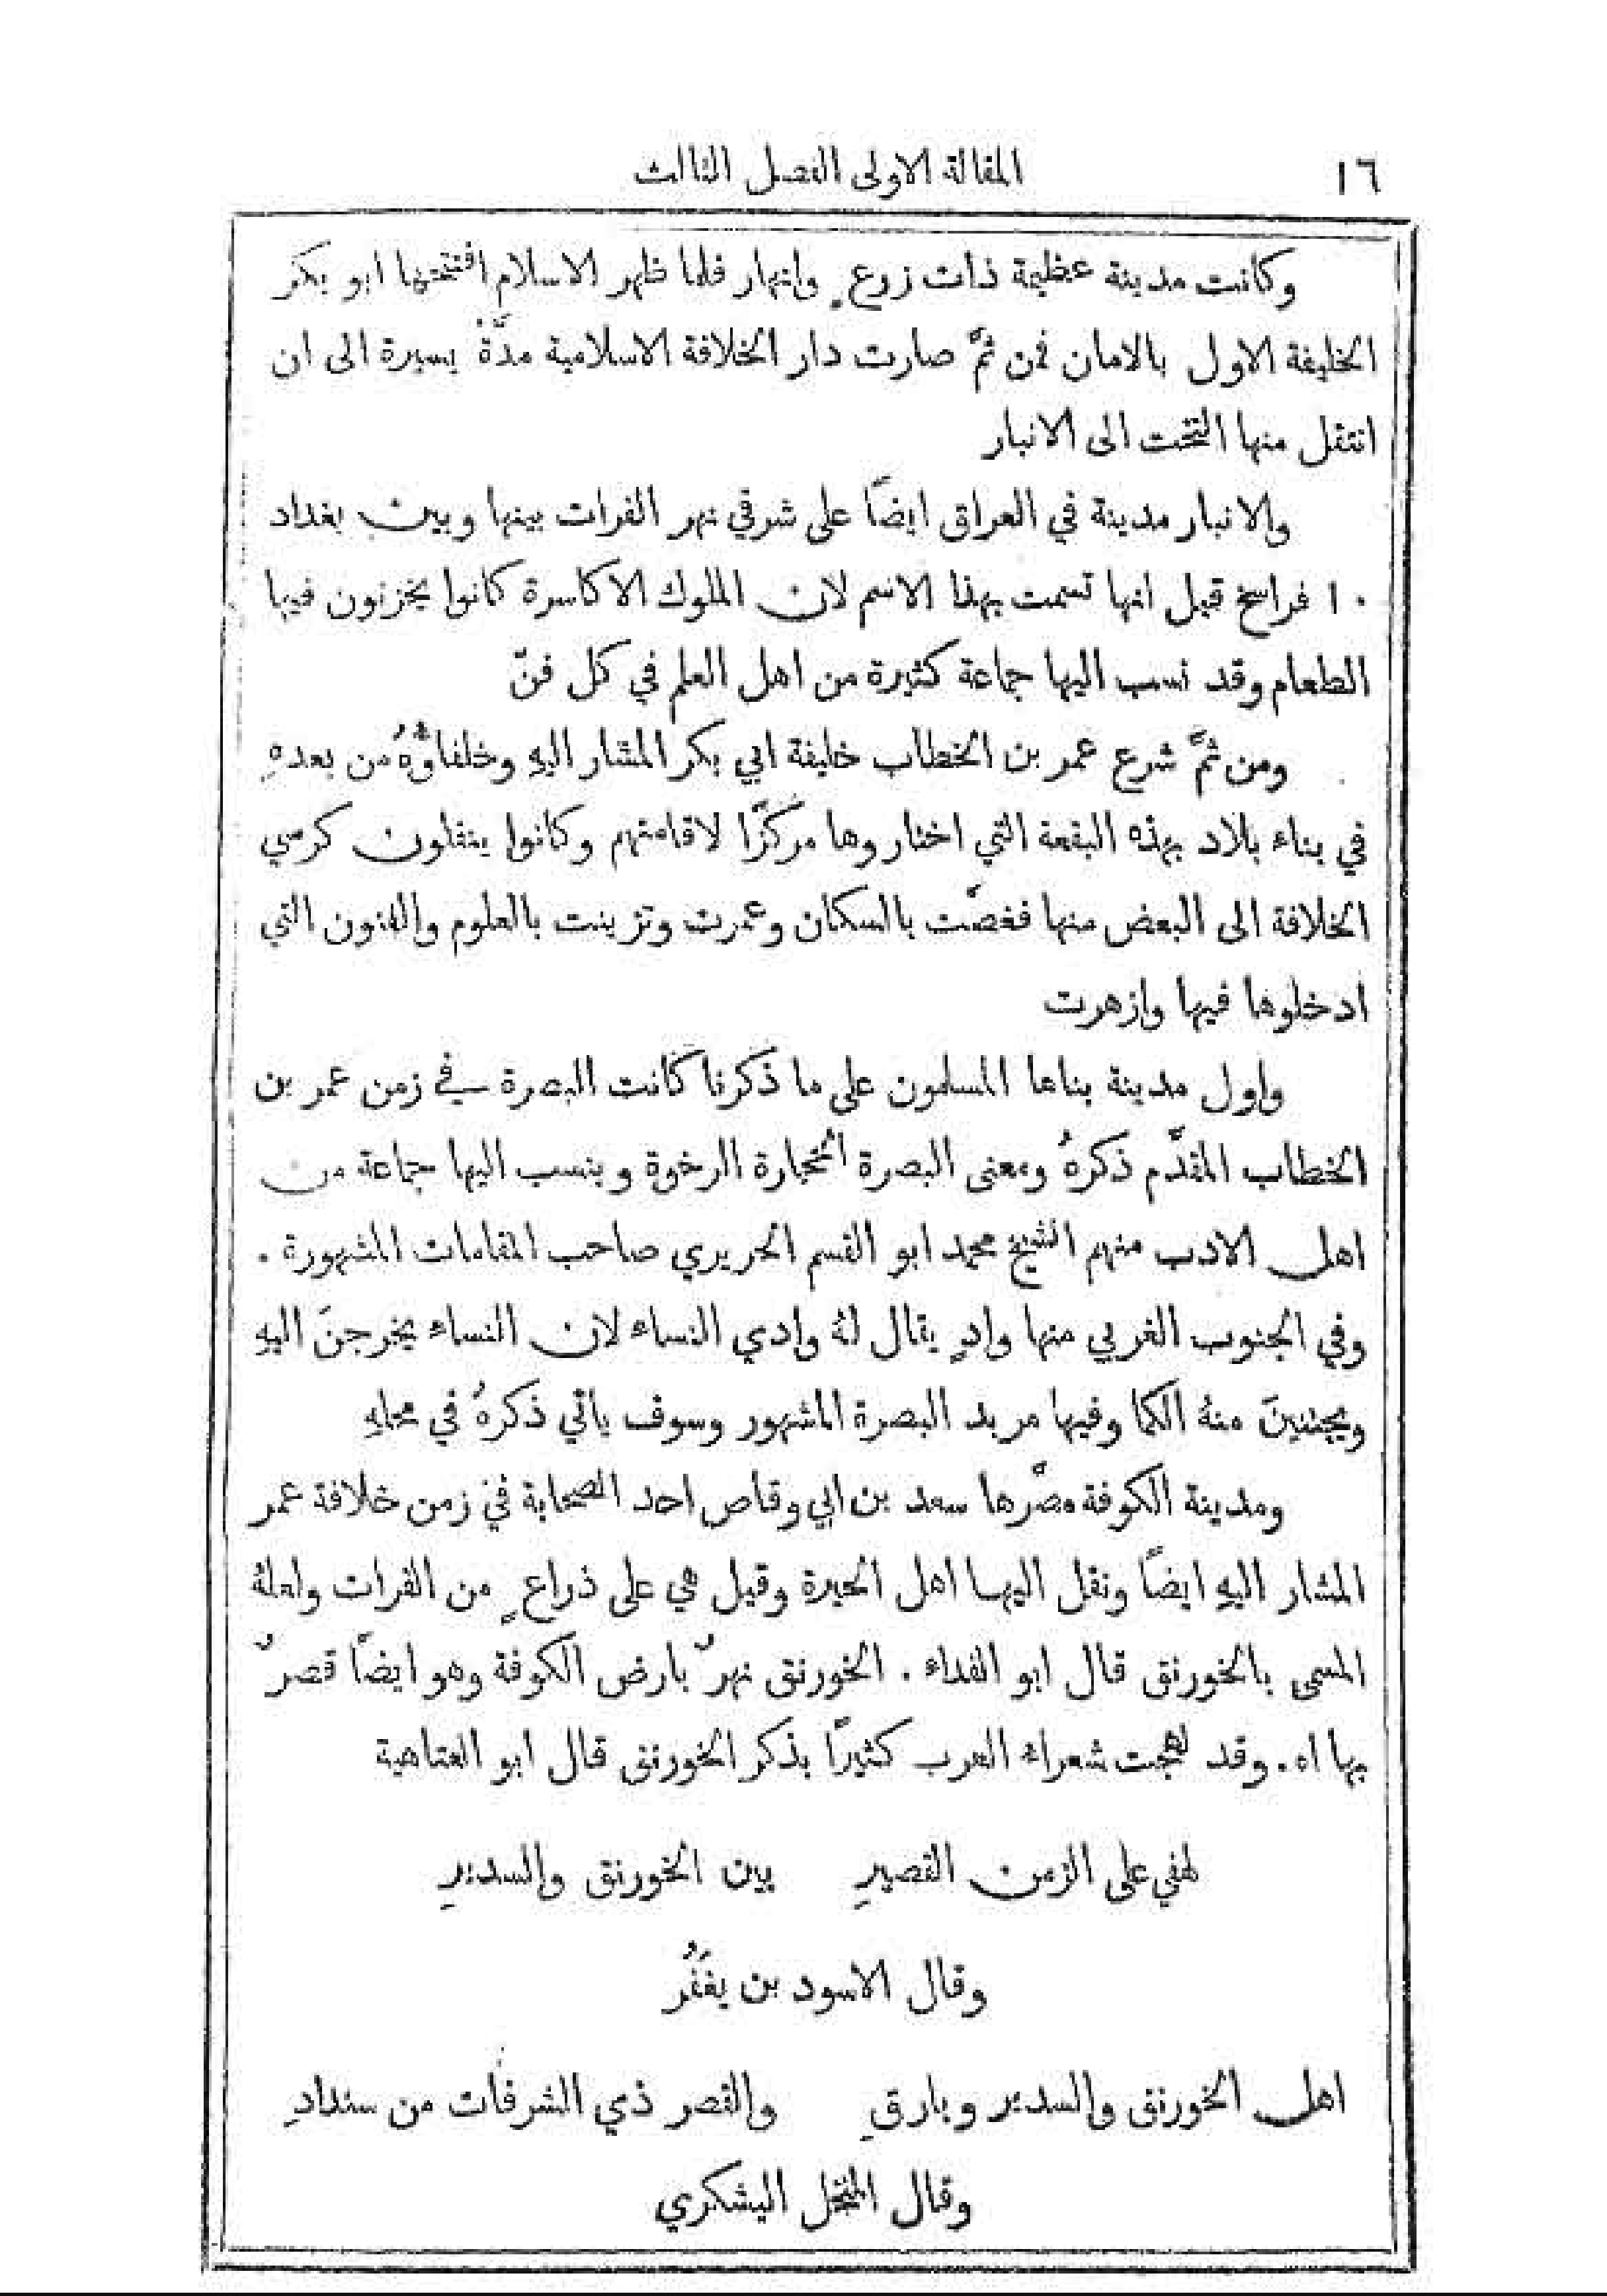 ١٦ المقالة الاولى الفصل الثالث
وكانت مدينة عظيمة ذات زرعٍ وانهار فلما ظهر الاسلام افتتحها ابو بكر
الخليفة الاول بالامان فمن ثمَّ صارت دار الخلافة الاسلامية مدَّةً يسيرة الى ان
انتقل منها التخت الى الانبار
والانبار مدينة في العراق ايضًا على شرقي نهر الفرات بينها وبين بغداد
١٠ فراسخ قيل انها تسمت بهذا الاسم لان الملوك الاكاسرة كانوا يخزنون فيها
الطعام وقد نسب اليها جماعة كثيرة من اهل العلم في كل فنّ
ومن ثمَّ شرع عمر بن الخطاب خليفة ابي بكر المشار اليهِ وخلفاؤُهُ من بعدهِ
في بناء بلاد بهذه البقعة التي اختاروها مركزًا لاقامتهم وكانوا ينقلون كرسي
الخلافة الى البعض منها فغصَّت بالسكان وعمرت وتزينت بالعلوم والفنون التي
ادخلوها فيها وازهرت
واول مدينة بناها المسلمون على ما ذكرنا كانت البصرة في زمن عمر بن
الخطاب المقدَّم ذكرهُ ومعنى البصرة الحجارة الرخوة وينسب اليها جماعة من
اهل الادب منهم الشيخ محمد ابو القسم الحريري صاحب المقامات المشهورة .
وفي الجنوب الغربي منها وادٍ يقال لهُ وادي النساء لان النساء يخرجنَ اليهِ
ويجتنينَ منهُ الكما وفيها مربد البصرة المشهور وسوف ياتي ذكرهُ في محلهِ
ومدينة الكوفة مصَّرها سعد بن ابي وقاص احد الصحابة في زمن خلافة عمر
المشار اليهِ ايضًا ونقل اليها اهل الحيرة وقيل هي على ذراعٍ من الفرات ولعلهُ
المسمى بالخورنق قال ابو الفداء . الخورنق نهرٌ بارض الكوفة وهو ايضًا قصرٌ
بها اه . وقد لهجت شعراء العرب كثيرًا بذكر الخورنق قال ابو العتاهية
لهفي على الزمن القصيرِ بين الخورنق والسديرِ
وقال الاسود بن يغفُر
اهل الخورنق والسدير وبارقٍ والقصر ذي الشرفات من سندادِ
وقال المنخل اليشكري